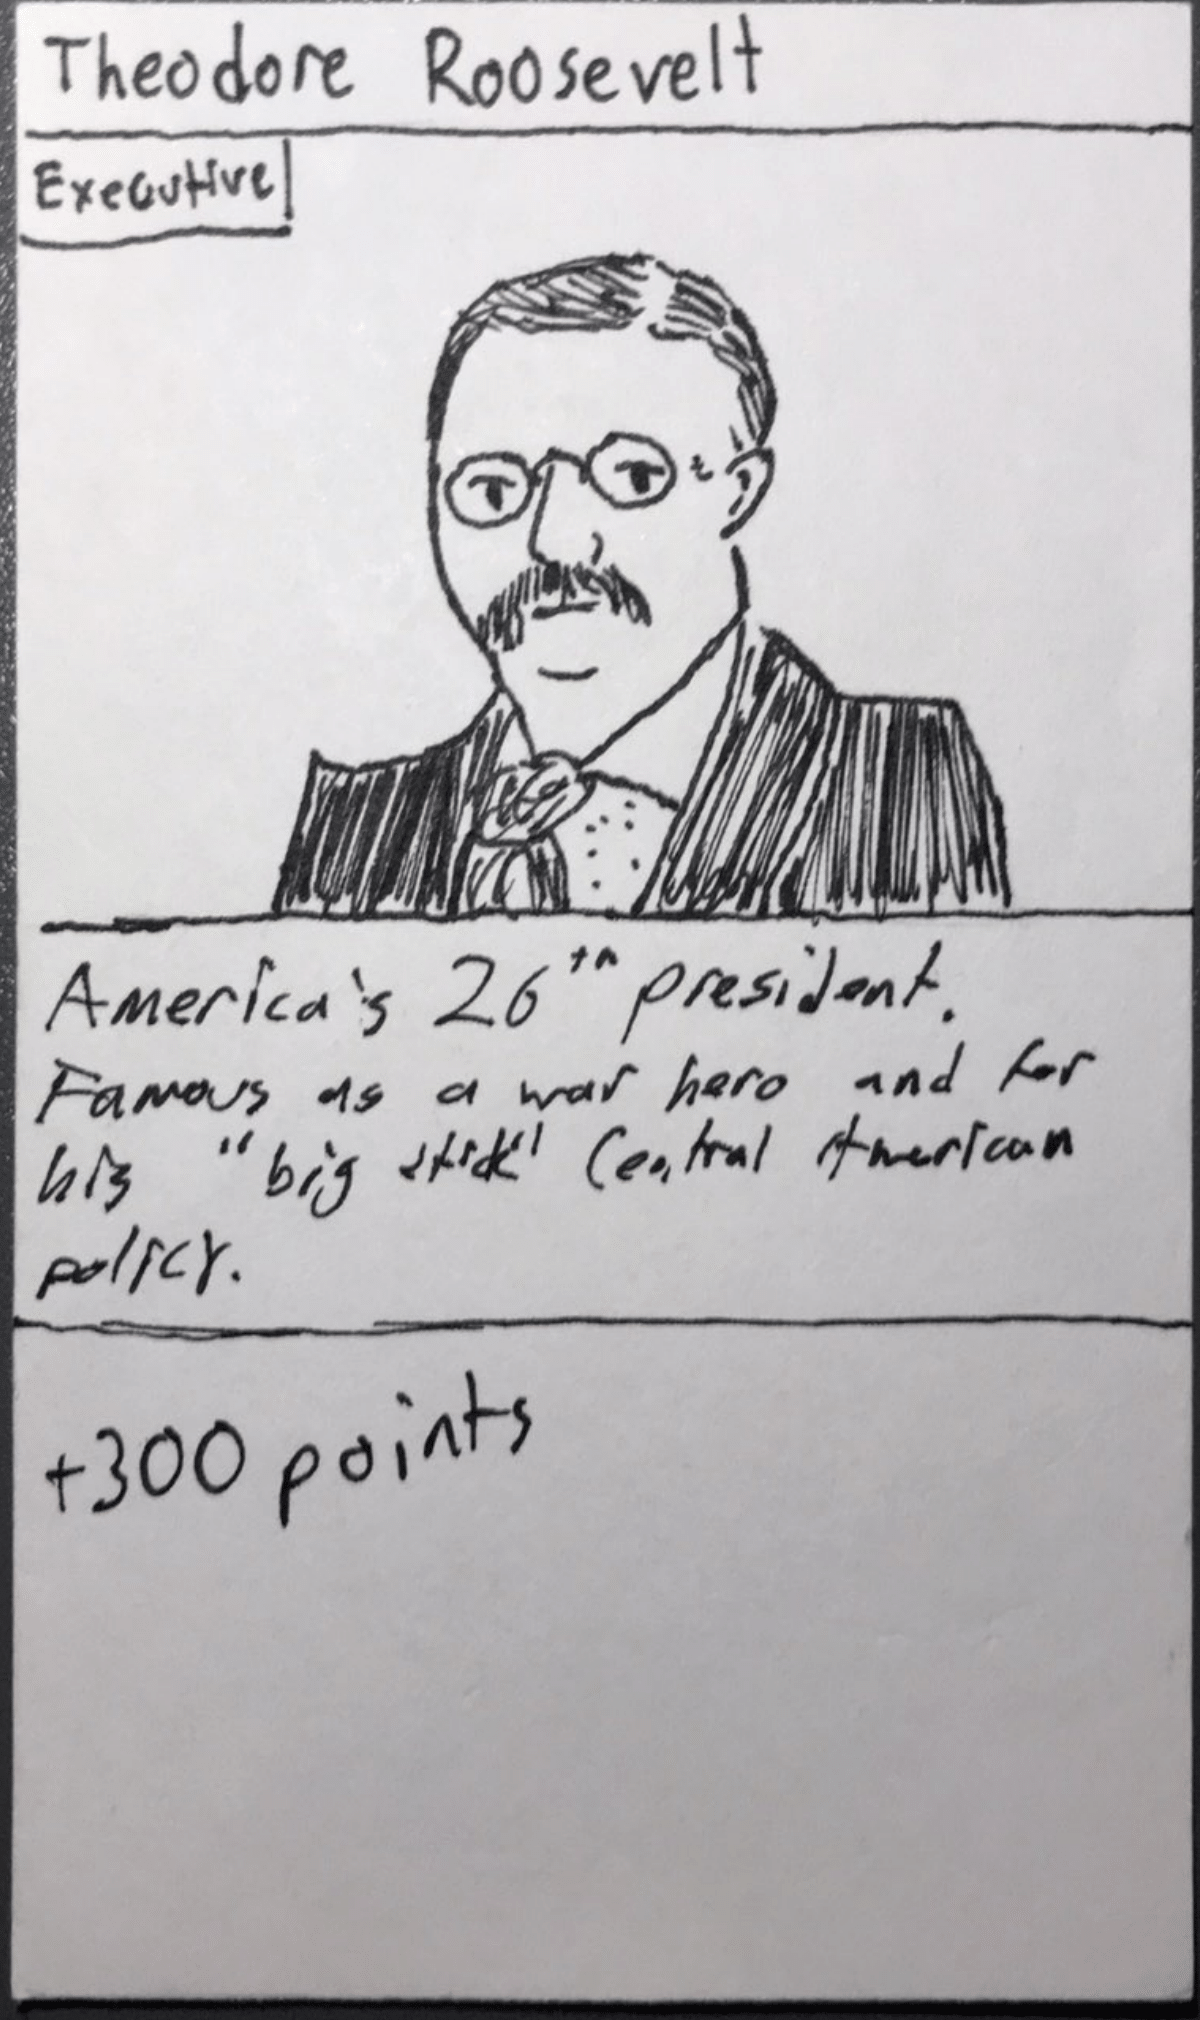 Theodore Roosevelt
Executive
America's 26th president.
Famous as a war hero and for
his "big stick" Central American
policy.
+300 points